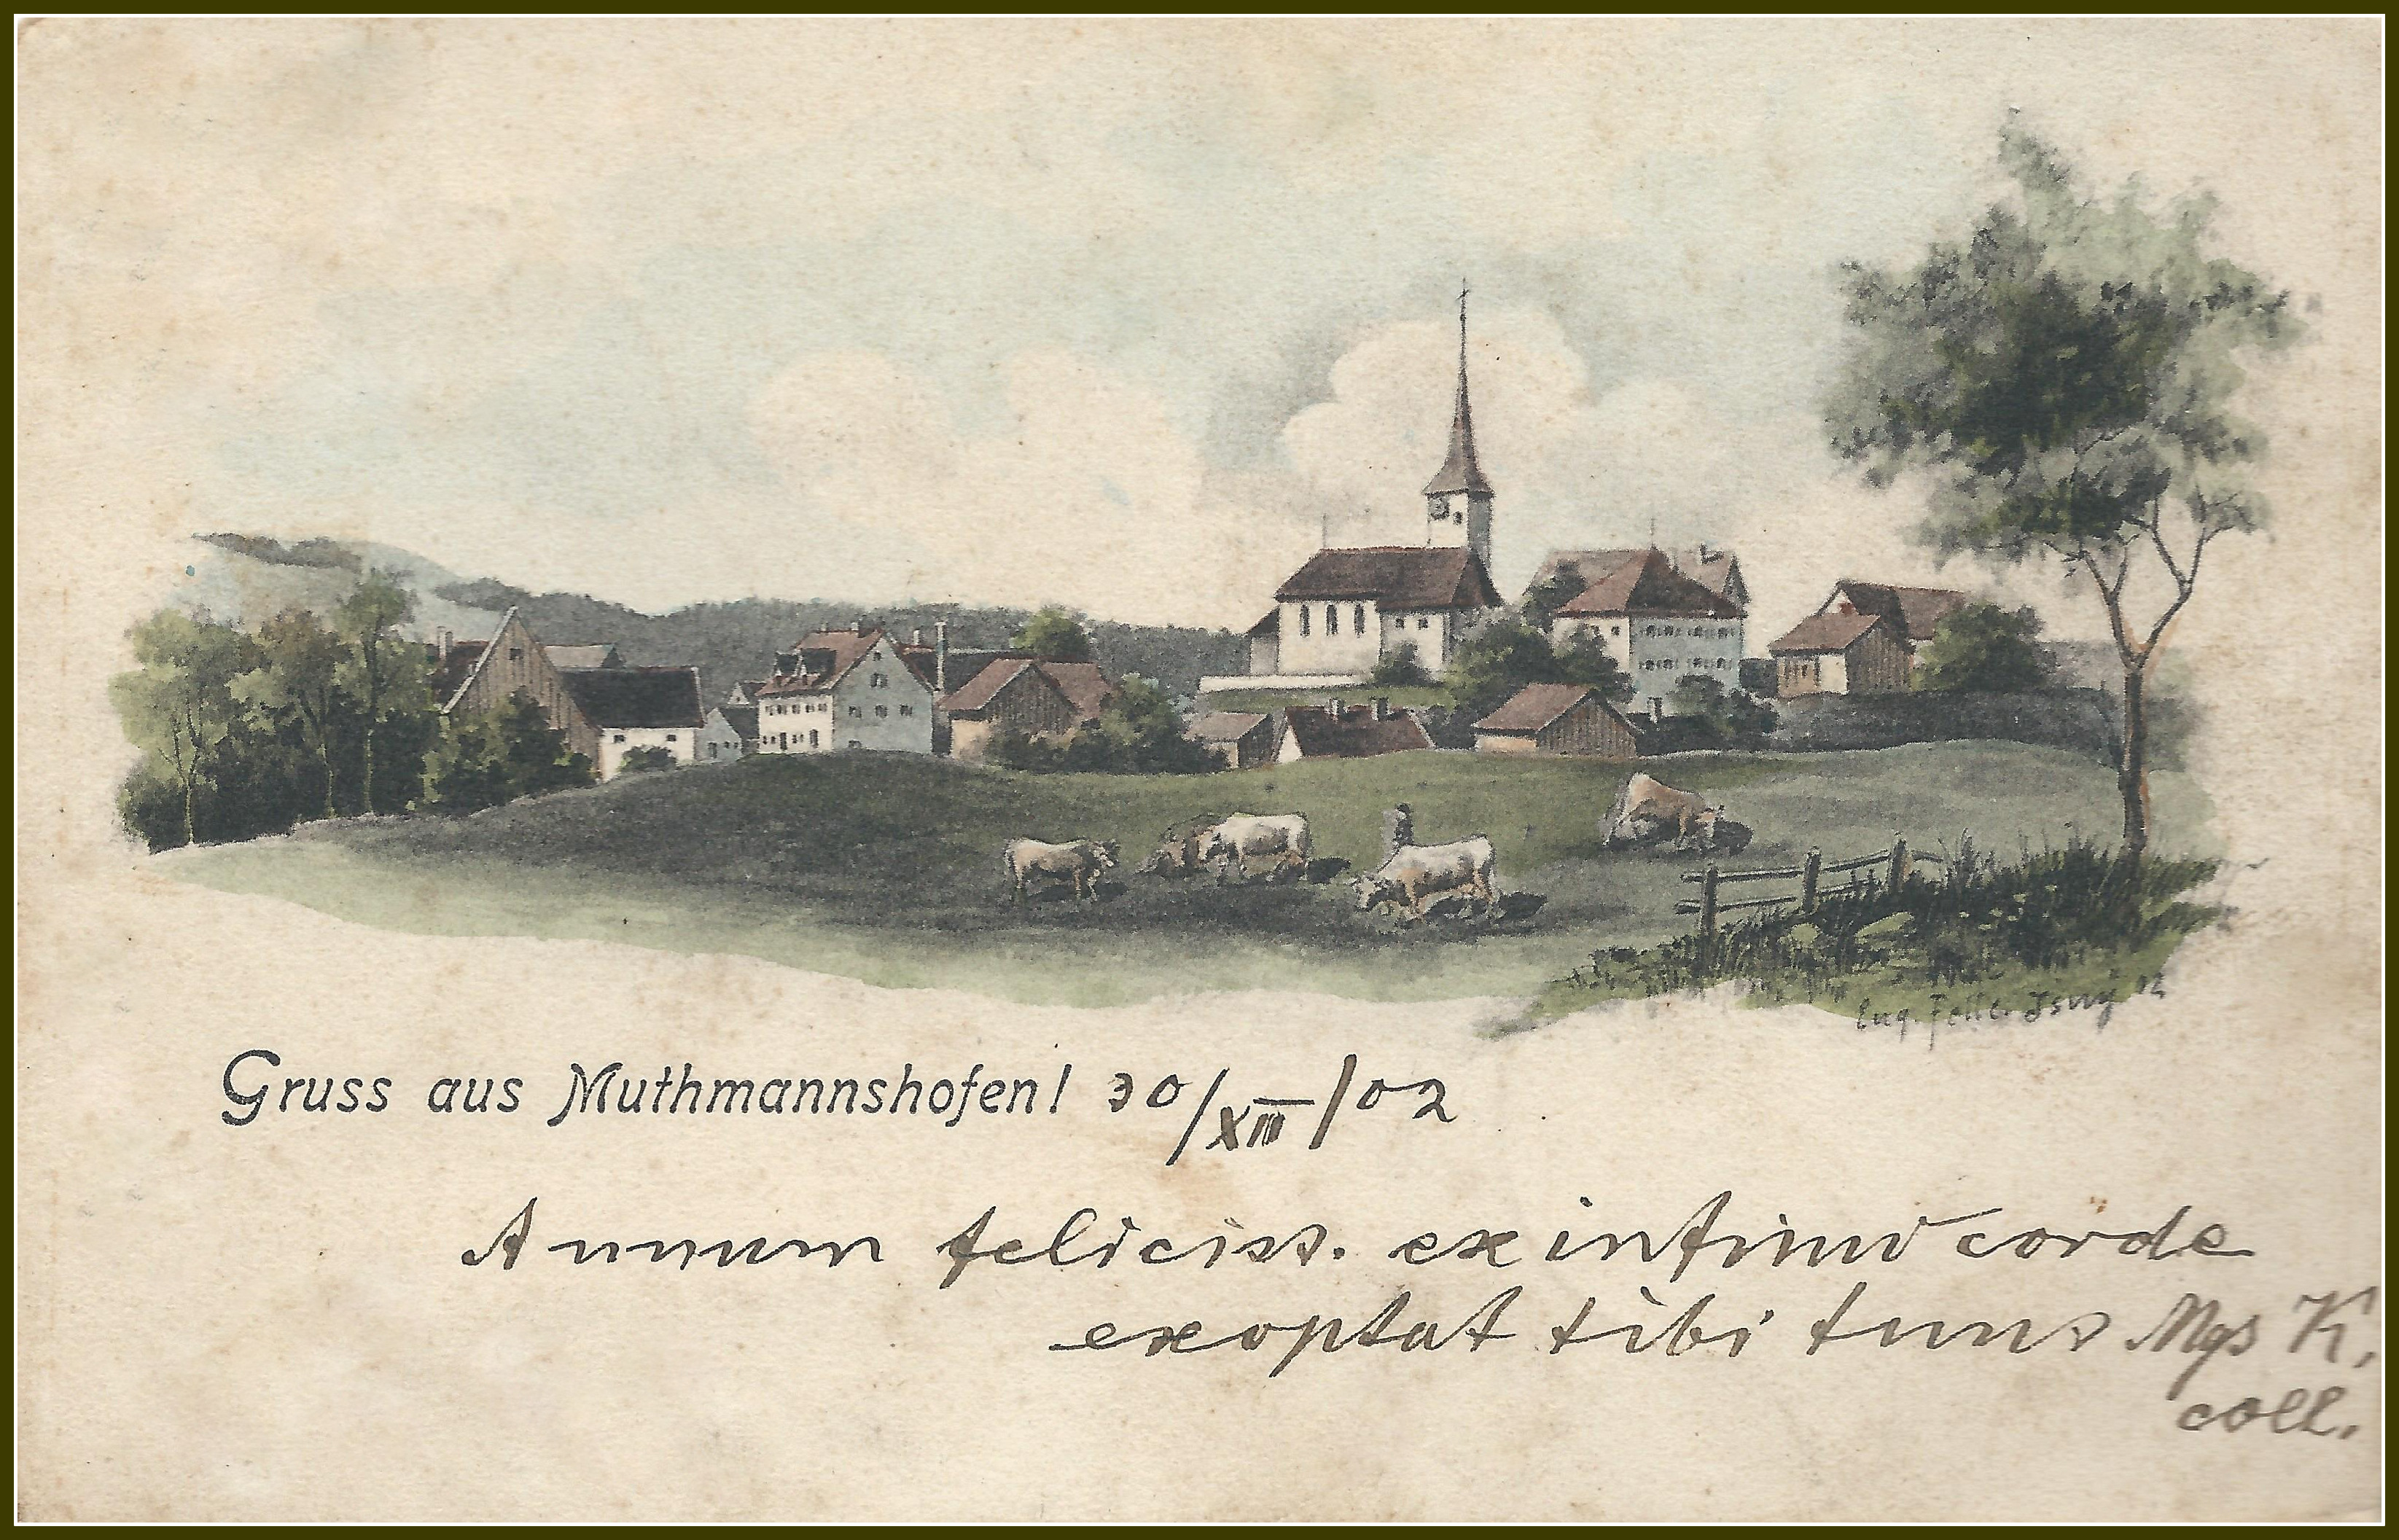 Eug. Felle. Isny 02
Gruss aus Muthmannshofen! 30/XII/02
Annum feliciss. ex intimo corde
exoptat tibi tuus Mgs K,
coll.